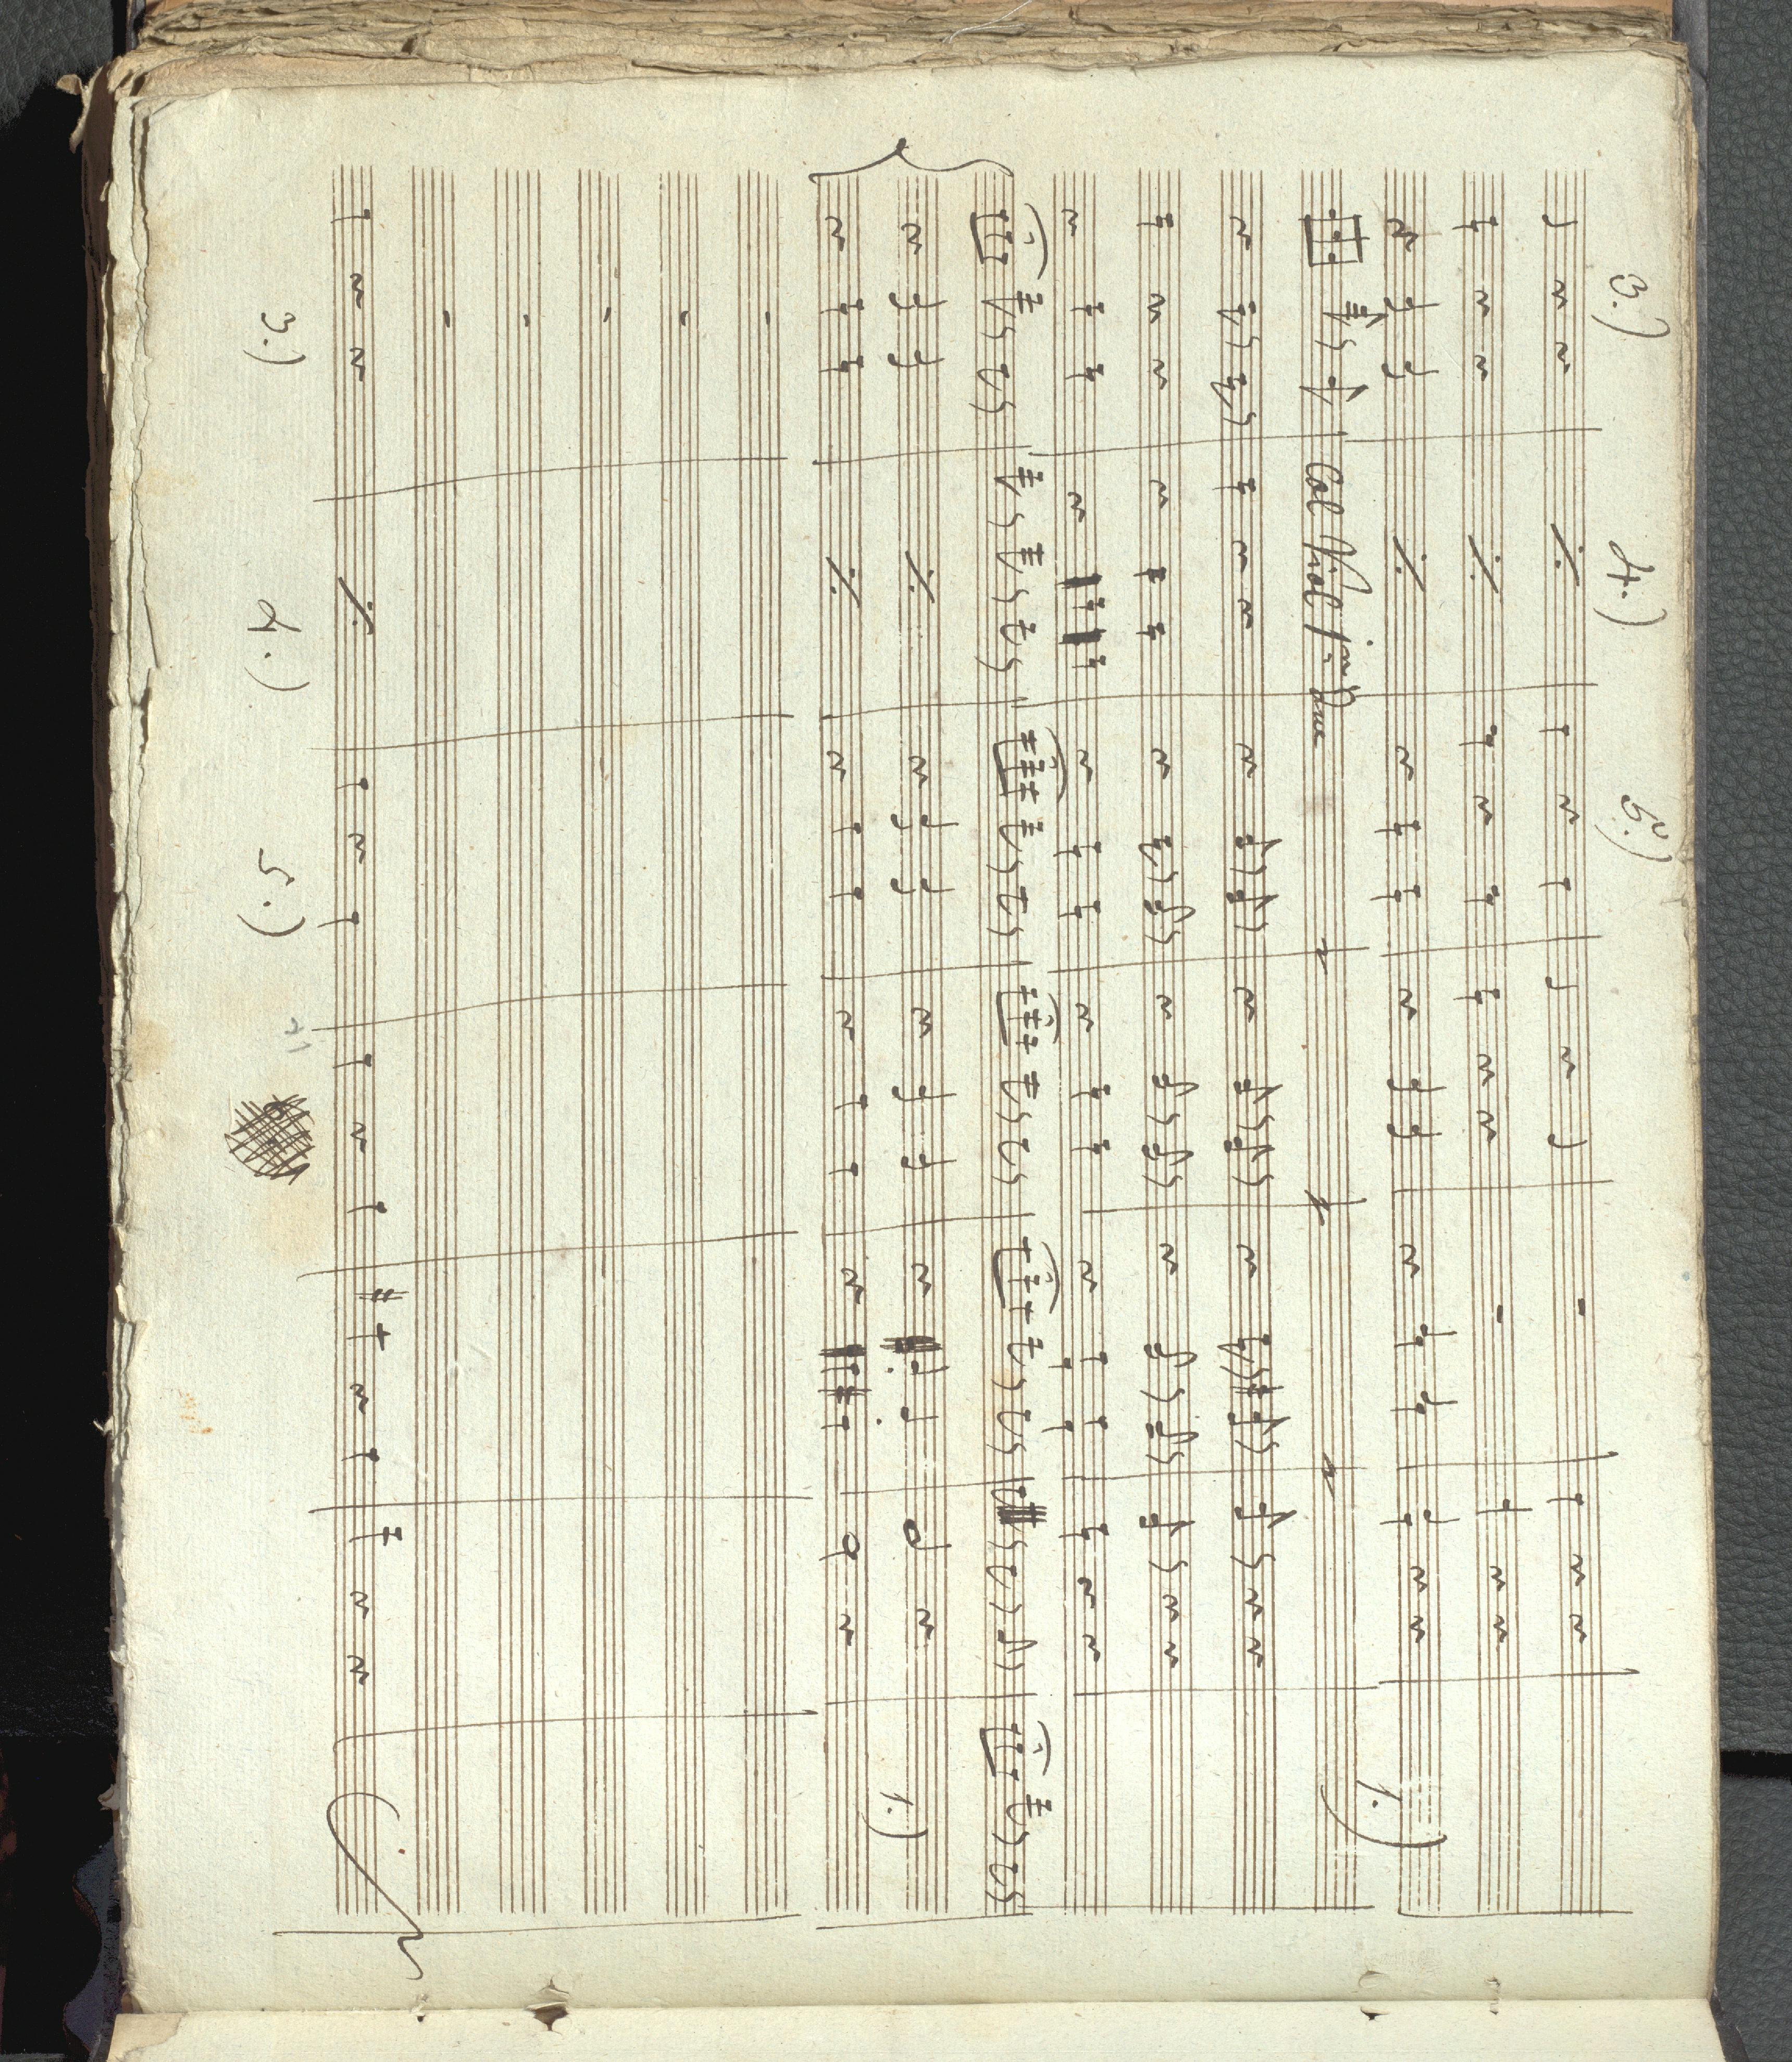 3.) 4.) 5.)
Col Viol pmo
1.)
1.)
3.) 4.) 5.)